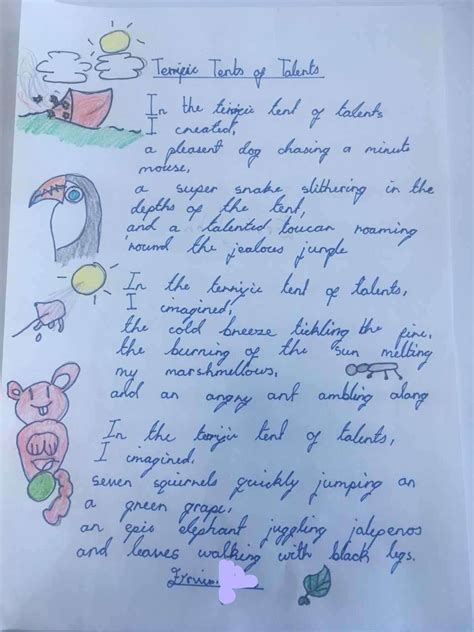 Terrific Tents of Talents
In the terrific tent of talents
I created,
a pleasent dog chasing a minute
mouse,
a super snake slithering in the
depths of the tent,
and a talented toucan roaming
'round the jealous jungle
In the terrific tent of talents,
I imagined,
the cold breeze tickling the fire,
the burning of the sun melting
my marshmellows,
and an angry ant ambling along
In the terrific tent of talents,
I imagined,
seven squirrels quickly jumping on
a green grape,
an epic elephant juggling jalepenos
and leaves walking with black legs.